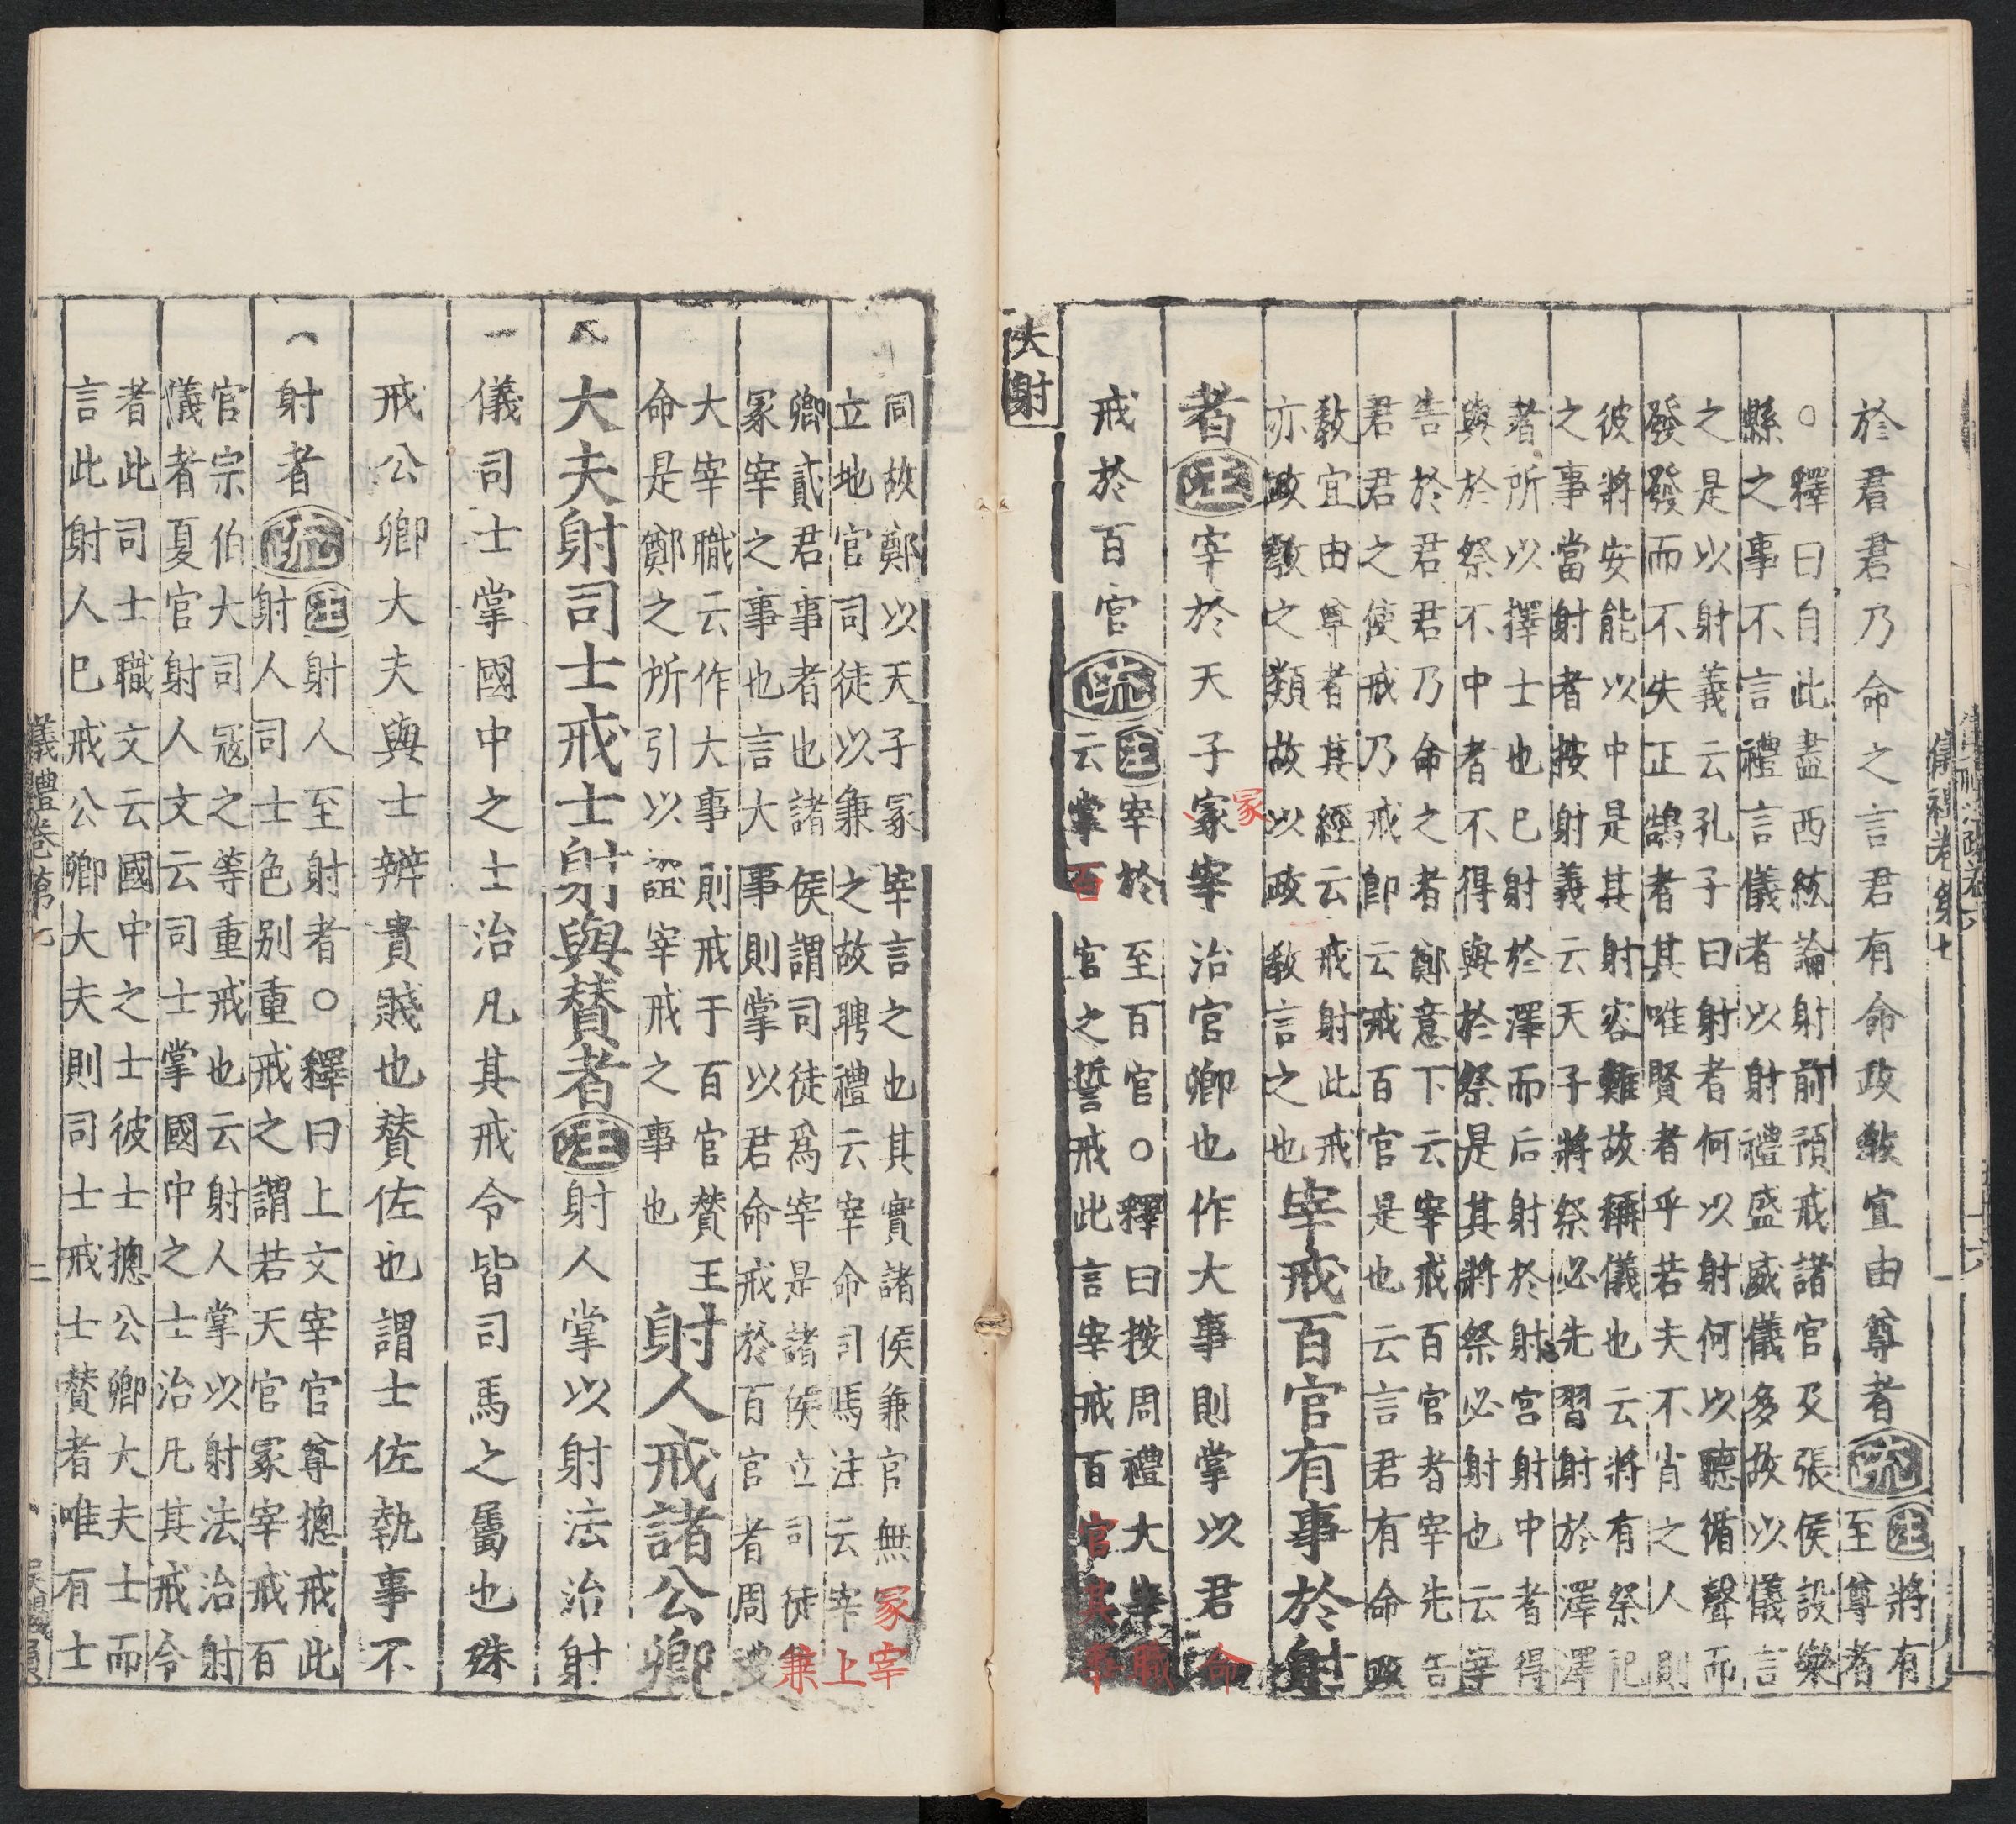 於君君乃命之言君有命政敎宜由尊者疏注將有
至尊者
○釋曰自此盡西紘論射前預戒諸官及張侯設樂
縣之事不言禮言儀者以射禮盛威儀多故以儀言
之是以射義云孔子曰射者何以射何以聽循聲而
發發而不失正鵠者其唯賢者乎若夫不肖之人則
彼將安能以中是其射容難故稱儀也云將有祭祀
之事當射者按射義云天子將祭必先習射於澤澤
者所以擇士也已射於澤而后射於射宮射中者得
與於祭不中者不得與於祭是其將祭必射也云宰
告於君君乃命之者鄭意下云宰戒百官者宰先告
君君之使戒乃戒卽云戒百官是也云言君有命政
敎宜由尊者其經云戒射此戒
亦政敎之類故以政敎言之也
宰戒百官有事於射
者注宰於天子冢宰治官卿也作大事則掌以君命
冢
戒於百官疏注宰於至百官○釋曰按周禮大宰職
云掌百官之誓戒此言宰戒百官其事
大射
同故鄭以天子冢宰言之也其實諸侯兼官無冢宰
立地官司徒以兼之故聘禮云宰命司馬注云宰上
卿貳君事者也諸侯謂司徒爲宰是諸侯立司徒兼
冢宰之事也言大事則掌以君命戒於百官者周禮
大宰職云作大事則戒于百官贊王
命是鄭之所引以證宰戒之事也
射人戒諸公卿
大夫射司士戒士射與贊者注射人掌以射法治射
儀司士掌國中之士治凡其戒令皆司馬之屬也殊
戒公卿大夫與士辨貴賤也贊佐也謂士佐執事不
射者疏注射人至射者○釋曰上文宰官尊摠戒此
射人司士色別重戒之謂若天官冢宰戒百
官宗伯大司冦之等重戒也云射人掌以射法治射
儀者夏官射人文云司士掌國中之士治凡其戒令
者此司士職文云國中之士彼士摠公卿大夫士而
言此射人已戒公卿大夫則司士戒士贊者唯有士
儀禮卷第七
二